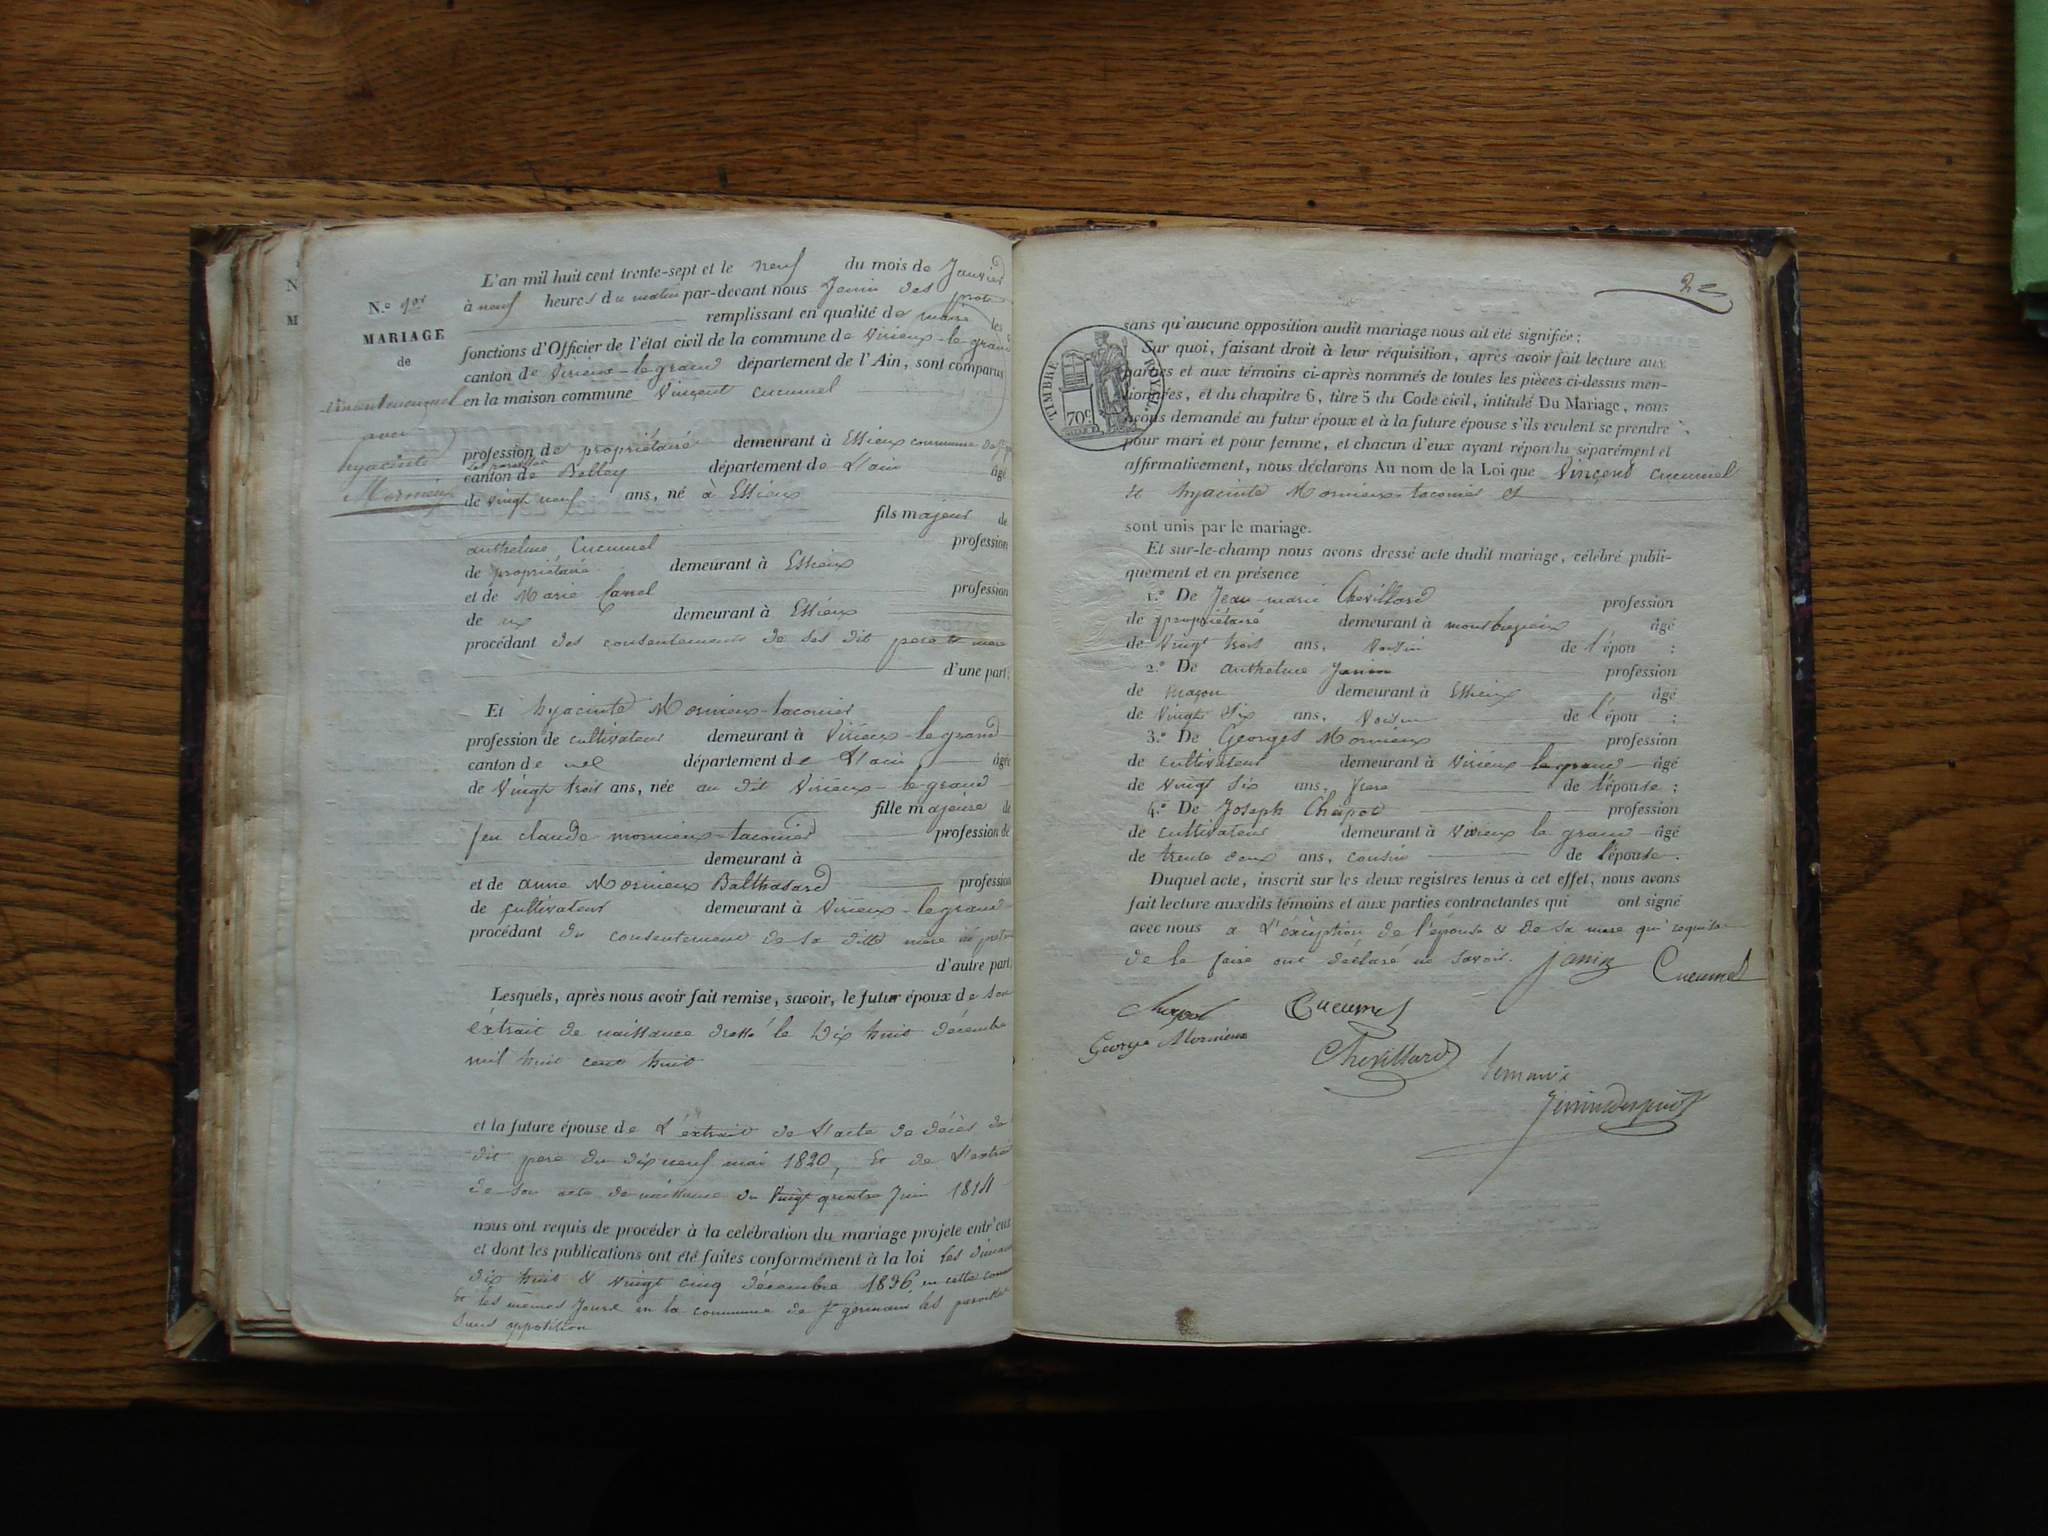 N.o 1er
MARIAGE
de
Vincent cucumel
avec
hyacinte
Mornieux
L'an mil huit cent trente-sept et le neuf du mois de Janvier
à neuf heures du matin par-devant nous
remplissant en qualité de maire les
fonctions d'Officier de l'état civil de la commune de Virieux-le-grand
canton de Virieux-le-grand département de l'Ain, sont comparus
en la maison commune Vincent cucumel
profession de propriétaire demeurant à Essieux commune de St
les paroisses
canton de Belley département de L'ain âgé
de vingt neuf ans, né à Essieux
fils majeur de
anthelme Cucumel profession
de propriétaire demeurant à Essieux
et de Marie profession
de demeurant à Essieux
procédant des consentements de ses dit pere et mere
d'une part;
Et hyacinte Mornieux-taconier
profession de cultivateur demeurant à Virieux-le-grand
canton de département de L'ain âgée
de Vingt trois ans, née au dit Virieux-le-grand
fille majeure de
feu claude mornieux-taconier profession de
demeurant à
et de anne Mornieux Balthasard profession
de cultivateur demeurant à Virieux-le-grand
procédant du consentement de sa ditte mere
d'autre part;
Lesquels, après nous avoir fait remise, savoir, le futur époux de son
extrait de naissance dressé le Dix huit décembre
mil huit cent huit
et la future épouse de L'extrait de L'acte de décès de
dit pere du dix neuf mai 1820, Et de L'extrait
de son acte de naissance du Vingt quatre Juin 1814
nous ont requis de procéder à la celébration du mariage projete entr'eux
et dont les publications ont été faites conformément à la loi les
dix huit & vingt cinq décembre 1836, en cette
Et les mêmes Jours en la commune de St germain les paroisses
Sans opposition
2
TIMBRE ROYAL.
70c
sans qu'aucune opposition audit mariage nous ait été signifiée;
Sur quoi, faisant droit à leur réquisition, après avoir fait lecture aux
parties et aux témoins ci-après nommés de toutes les pièces ci-dessus men-
tionnées, et du chapitre 6, titre 5 du Code civil, intitulé Du Mariage, nous
avons demandé au futur époux et à la future épouse s'ils veulent se prendre
pour mari et pour femme, et chacun d'eux ayant répondu séparément et
affirmativement, nous déclarons Au nom de la Loi que Vincent cucumel
& hyacinte Mornieux-taconier et
sont unis par le mariage.
Et sur-le-champ nous avons dressé acte dudit mariage, célébré publi-
quement et en présence
1.o De Jean marie Chevillard profession
de propriétaire demeurant à âgé
de Vingt trois ans, Voisin de l'épou ;
2.o De anthelme Janin profession
de maçon demeurant à Essieux âgé
de Vingt Six ans, Voisin de l'épou ;
3.o De Georges Mornieux profession
de cultivateur demeurant à Virieux le grand âgé
de vingt Six ans, frere de l'épouse ;
4.o De Joseph Chapot profession
de cultivateur demeurant à Virieux le grand âgé
de trente deux ans, cousin de l'épouse.
Duquel acte, inscrit sur les deux registres tenus à cet effet, nous avons
fait lecture auxdits témoins et aux parties contractantes qui ont signé
avec nous a L'éxception de l'épouse & de sa mere qui requise
de le faire ont déclaré ne Savoir. Janin Cucumel
Chapot Cucumel
George Mornieux
Chevillard
Le maire